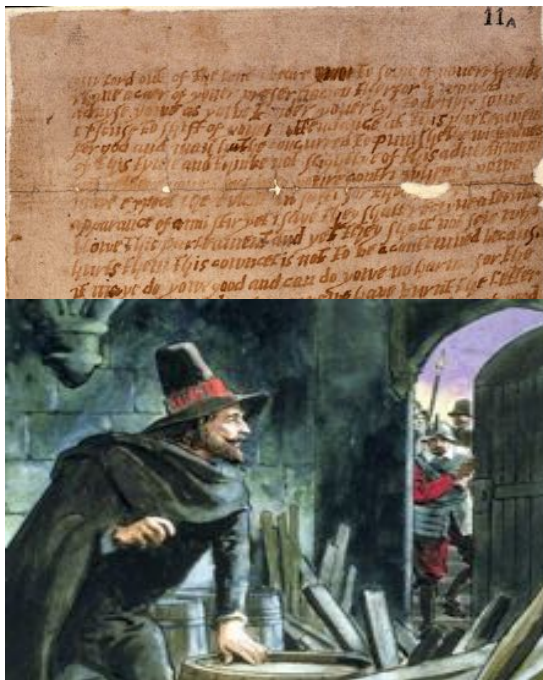 11A
lord out of the love i beare to some of youere frends
i have a caer of youer preseruacion therfor i would
aduyse yowe as yowe tender youer lyf to deuys some
excuse to shift of youer attendance at this parleament
for god and man hathe concurred to punishe the wickednes
of this tyme and thinke not slightlye of this aduertisment
youre contri wheare yowe
maye expect the euent in safti for
apparance of anni stir yet i saye they shall receyue a terrible
blowe this parleament and yet they shall not seie who
hurts them this councel is not to be contemned because
it maye do yowe good and can do yowe no harme for the
haue burnt the letter